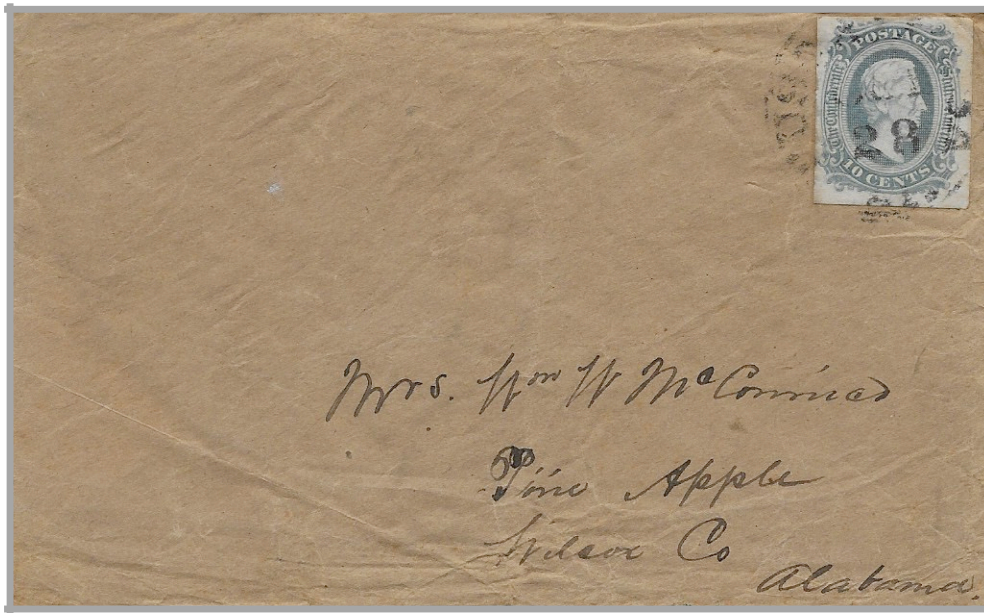 POSTAGE
The Confederate States of America
28
10 CENTS
Mrs. Wm W
Pine Apple
Wilcox Co
Alabama.